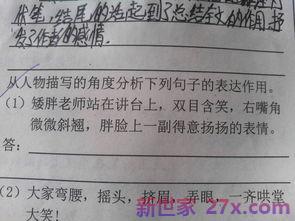 伏笔,结尾的话起到了总结全文的作用,抒
发了作者的感情.
从人物描写的角度分析下列句子的表达作用。
(1)矮胖老师站在讲台上,双目含笑,右嘴角
微微斜翘,胖脸上一副得意扬扬的表情。
答:
(2)大家弯腰,摇头,挤眉,弄眼,一齐哄堂
大笑!
新世家 27x.com